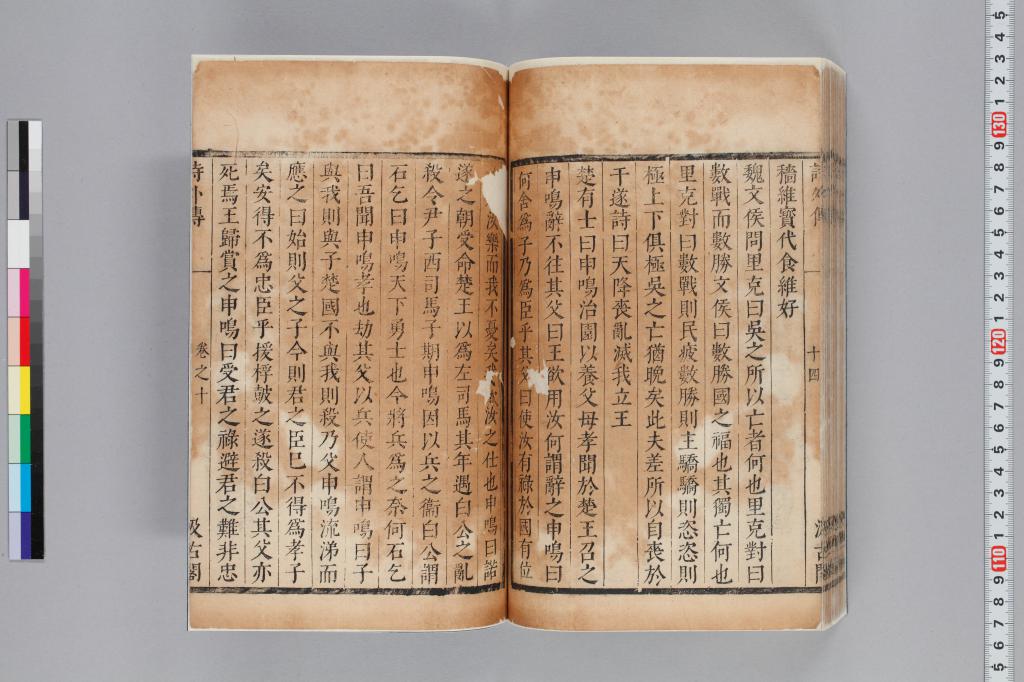 十四
穡維寶代食維好
魏文侯問里克曰吳之所以亡者何也里克對曰
數戰而數勝文侯曰數勝國之福也其獨亡何也
里克對曰數戰則民疲數勝則主驕驕則恣恣則
極上下俱極吳之亡猶晚矣此夫差所以自喪於
干遂詩曰天降喪亂滅我立王
楚有士曰申鳴治園以養父母孝聞於楚王召之
申鳴辭不往其父曰王欲用汝何謂辭之申鳴曰
何舍爲子乃爲臣乎其父曰使汝有祿於國有位
汝樂而我不憂矣汝之仕也申鳴曰諾
遂之朝受命楚王以爲左司馬其年遇白公之亂
殺令尹子西司馬子期申鳴因以兵之衞白公謂
石乞曰申鳴天下勇士也今將兵爲之奈何石乞
曰吾聞申鳴孝也劫其父以兵使人謂申鳴曰子
與我則與子楚國不與我則殺乃父申鳴流涕而
應之曰始則父之子今則君之臣巳不得爲孝子
矣安得不爲忠臣乎援桴鼓之遂殺白公其父亦
死焉王歸賞之申鳴曰受君之祿避君之難非忠
詩外傳 卷之十 汲古閣